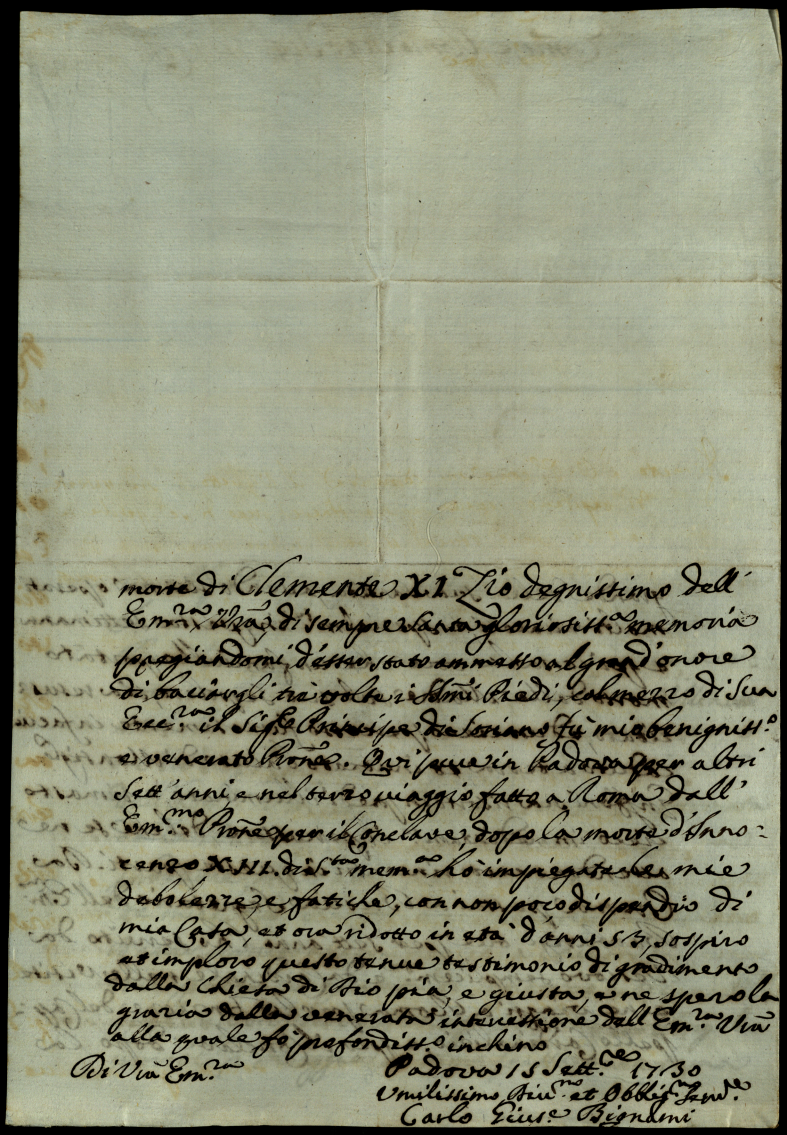 morte di Clemente XI Zio degnissimo dell'
Em.za Vra, di sempre santa gloriosiss.a memoria
pregiandomi, d'esser stato ammesso al grand'onore
di baciargli tre volte i SSmi Piedi, col mezzo di Sua
Ecc.za il Sig.e Principe di Soriano fù mio benigniss.o
e venerato Prone. Qui pure in Padova per altri
Sett'anni, e nel terzo viaggio fatto a Roma dall'
Em.mo Prone per il Conclave, dopo la morte d'Inno-
cenzo XIII. di S.ta mem.a hò impiegate le mie
debolezze, e fatiche, con non poco dispendio di
mia Casa, et ora ridotto in età d'anni 53, sospiro
et imploro questo tenue testimonio di gradimento
dalla Chiesa di Dio pia, e giusta, e ne spero la
grazia dalla venerata intercessione dell'Em.za Vra
alla quale fo profondiss.o inchino
Di Vra Em.za
Padova 15 Sett.re 1730
Umilissimo Div.mo et Obblig.mo Serv.e
Carlo Gius.e Bignami